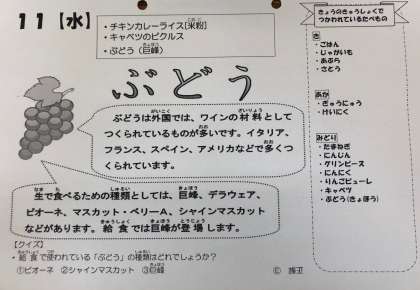 11【水】
・チキンカレーライス[米粉]
・キャベツのピクルス
・ぶどう（巨峰）
ぶどう
ぶどうは外国では、ワインの材料として
つくられているものが多いです。イタリア、
フランス、スペイン、アメリカなどで多くつ
くられています。
生で食べるための種類としては、巨峰、デラウェア、
ピオーネ、マスカット・ベリーA、シャインマスカット
などがあります。給食では巨峰が登場します。
【クイズ】
・給食で使われている「ぶどう」の種類はどれでしょうか？
①ピオーネ ②シャインマスカット ③巨峰
きょうのきゅうしょくで
つかわれているたべもの
き
・ごはん
・じゃがいも
・あぶら
・さとう
あか
・ぎゅうにゅう
・けいにく
みどり
・たまねぎ
・にんじん
・グリンピース
・にんにく
・りんごピューレ
・キャベツ
・ぶどう（きょほう）